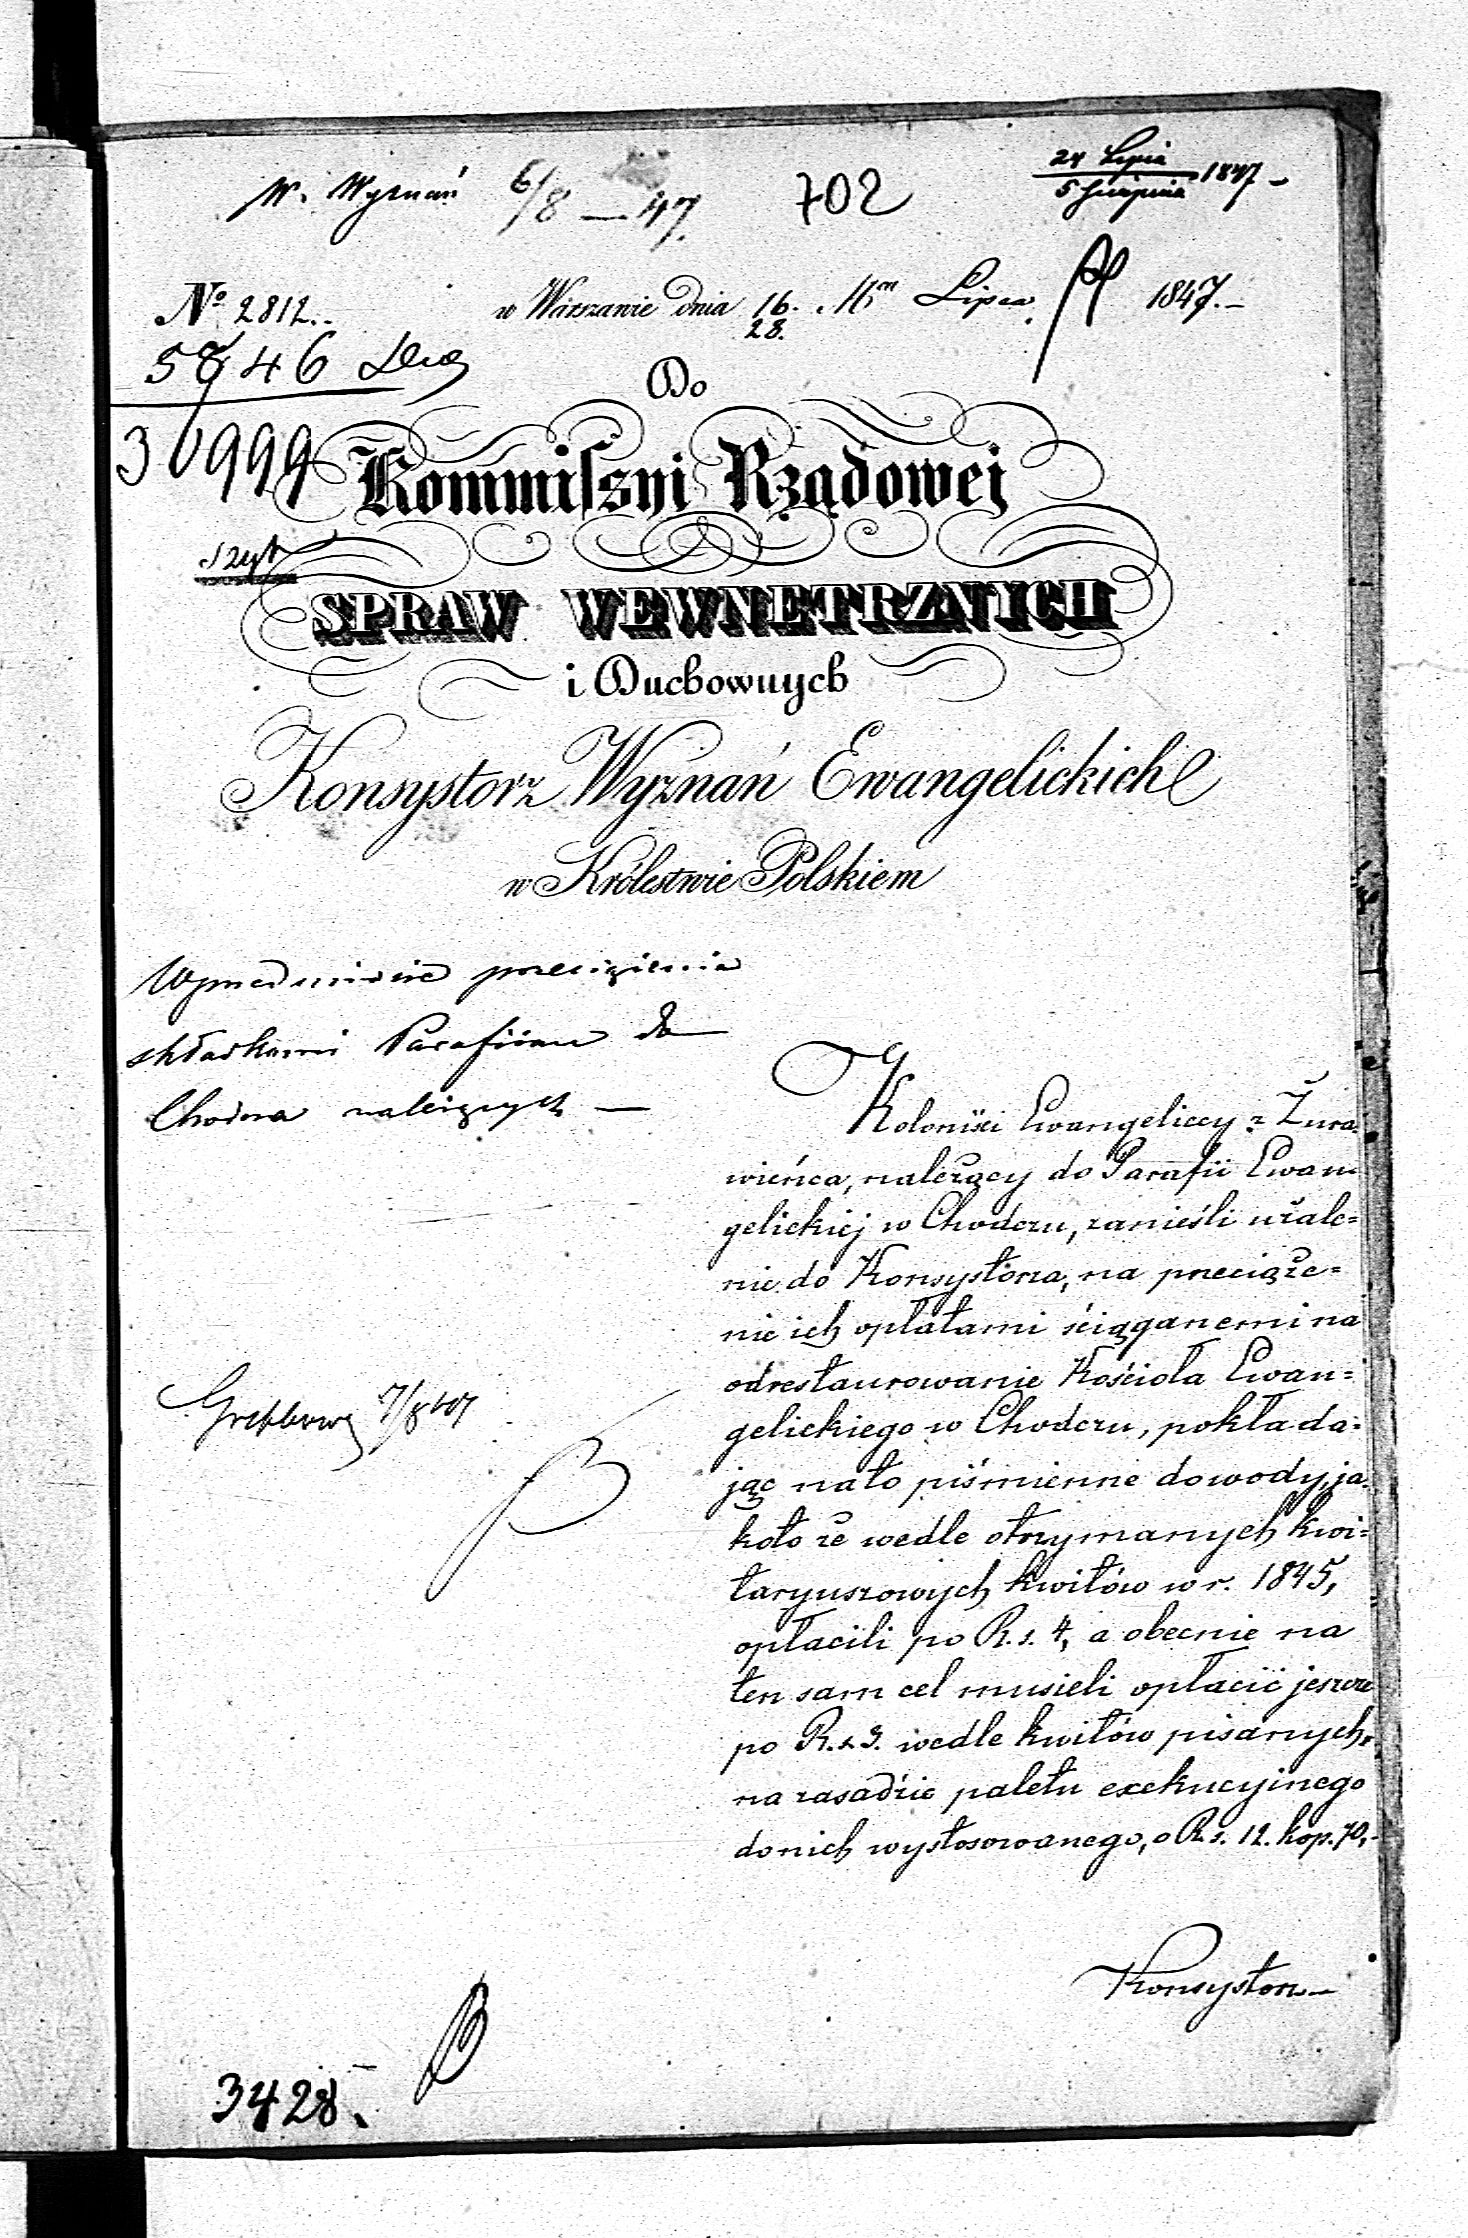 W. Wyznań 6/8 — 47. 702 24 Lipca / 5 Sierpnia 1847 –
No 2812. w Warszawie dnia 16./28. Lipca 1847. –
5846
30999
Do
Kommissyi Rządowej
szyt
SPRAW WEWNĘTRZNYCH
i Duchownych
Konsystorz Wyznań Ewangelickich
w Królestwie Polskiem
przeciążenia
składkami Parafian do
Chodcza należących —
Koloniści Ewangeliccy z Żura-
wieńca, należący do Parafii Ewan
gelickiej w Chodczu, zanieśli użale=
nie do Konsystorza, na przeciąże=
nie ich opłatami ściąganemi na
odrestaurowanie Kościoła Ewan=
gelickiego w Chodczu, pokłada=
jąc na to piśmienne dowody, ja-
koto że wedle otrzymanych kwi=
taryuszowych kwitów w r. 1845,
opłacili po R. s. 4, a obecnie na
ten sam cel musieli opłacić jeszcze
po R. s. 3. wedle kwitów pisanych,
na zasadzie paletu exekucyjnego
do nich wystosowanego, o R. s. 12. kop. 70, –
7/8 47
Konsystorz –
3428.